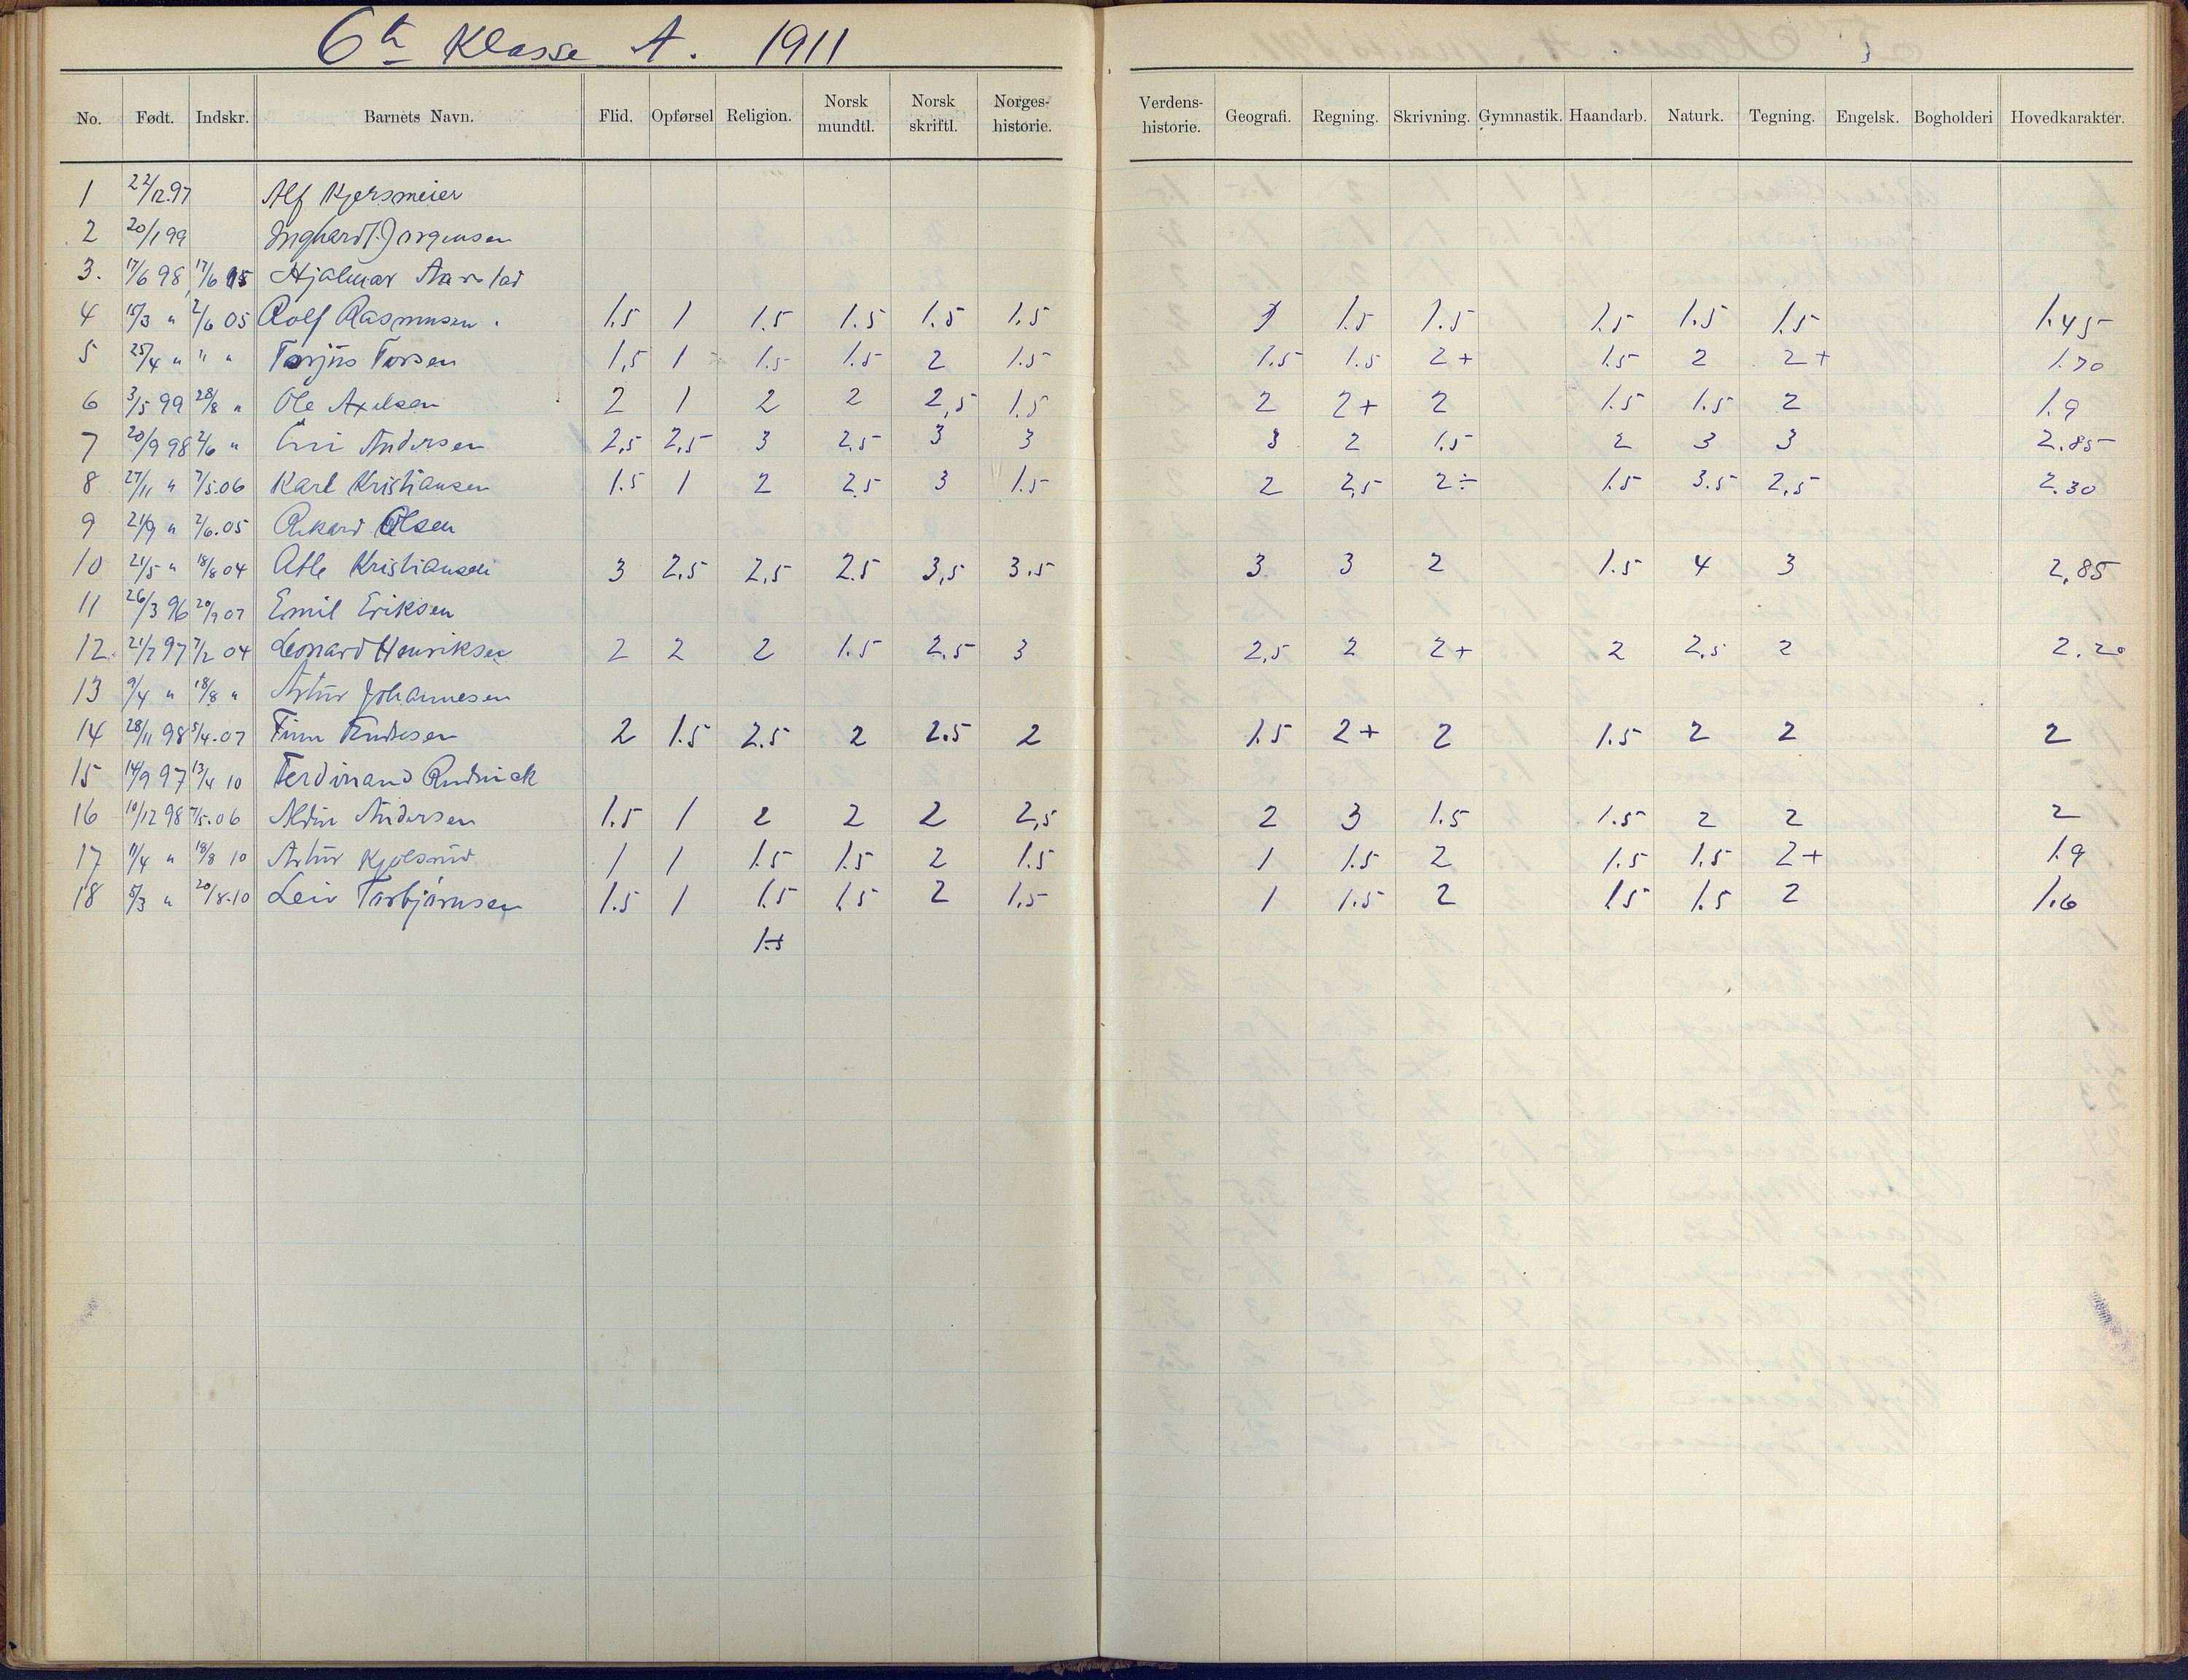 6te Klasse A. 1911
No. Født. Indskr. Barnets Navn. Flid. Opførsel Religion. Norsk mundtl. Norsk skriftl. Norges-historie. Verdens-historie. Geografi. Regning. Skrivning. Gymnastik. Haandarb. Naturk. Tegning. Engelsk. Bogholderi Hovedkarakter.
1 22/12.97 Alf Kjersmeier
2 20/1 99 Jørgensen
3. 17/6 98 17/6 Hjalmar
4 " 2/6 05 Rolf Rasmusen. 1.5 1 1.5 1.5 1.5 1.5 1 1.5 1.5 1.5 1.5 1.5 1.45
5 25/4 " " " Torjus Torsen 1,5 1 1.5 1.5 2 1.5 1.5 1.5 2+ 1.5 2 2+ 1.70
6 3/5 99 28/8 " Ole Axelsen 2 1 2 2 2,5 1.5 2 2+ 2 1.5 1.5 2 1.9
7 20/9 98 2/6 " Andersen 2,5 2,5 3 2.5 3 3 3 2 1.5 2 3 3 2.85
8 27/11 " 7/5.06 Karl Kristiansen 1.5 1 2 2.5 3 1.5 2 2,5 2÷ 1.5 3.5 2,5 2.30
9 21/9 " 2/6.05 Rikard Olsen
10 21/5 " 18/8 04 Atle Kristiansen 3 2.5 2,5 2.5 3,5 3.5 3 3 2 1.5 4 3 2,85
11 26/3 96 20/9 07 Emil Eriksen
12. 21/7 97 7/2 04 Leonard Henriksen 2 2 2 1.5 2.5 3 2,5 2 2+ 2 2.5 2 2.20
13 9/4 " 18/8 " Artur Johannesen
14 28/11 98 5/4.07 Finn Knudsen 2 1.5 2.5 2 2.5 2 1.5 2+ 2 1.5 2 2 2
15 14/9 97 13/4 10 Ferdinand Rudnick
16 10/12 98 7/5.06 Andersen 1.5 1 2 2 2 2,5 2 3 1.5 1.5 2 2 2
17 11/4 " 18/8 10 Artur Kjølsrud 1 1 1.5 1.5 2 1.5 1 1.5 2 1.5 1.5 2+ 1.9
18 5/3 " 20/8.10 Leiv Torbjørnsen 1.5 1 1.5 1.5 2 1,5 1 1.5 2 1.5 1.5 2 1.6
1.5